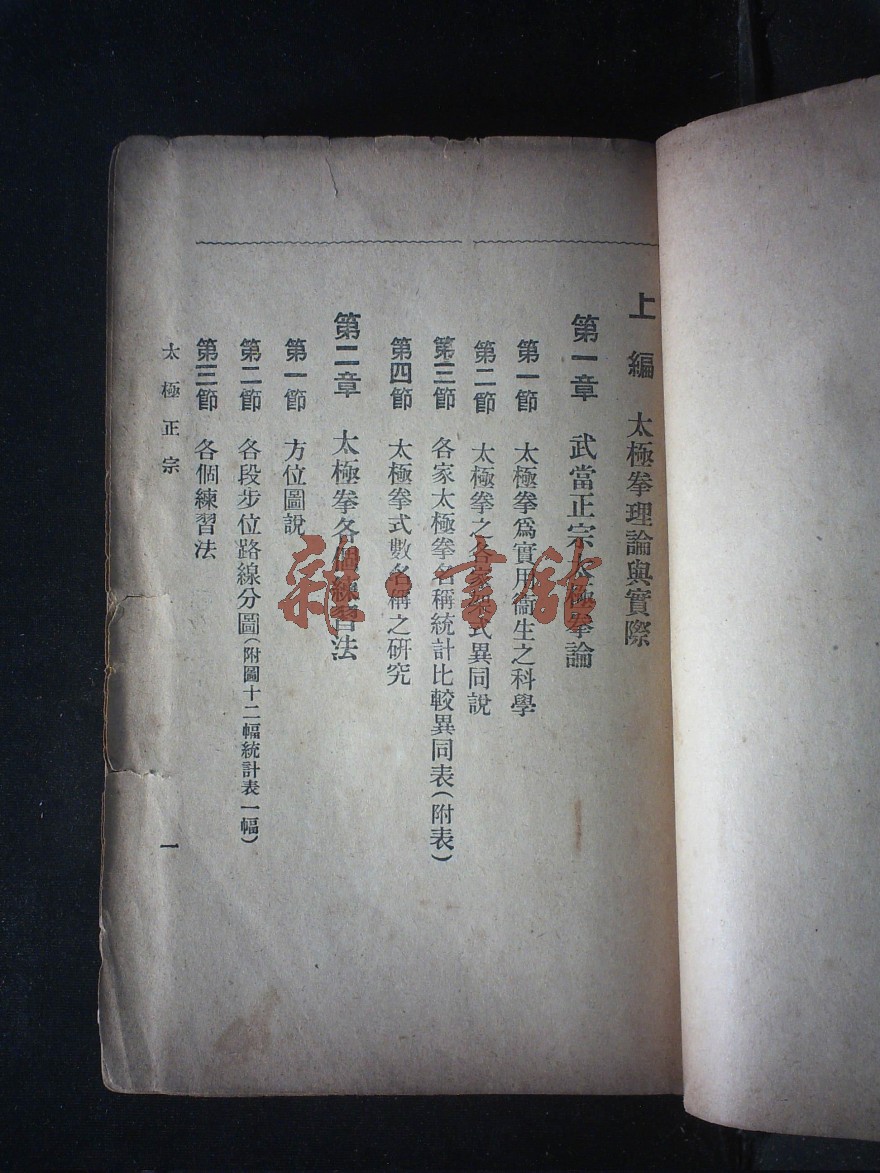 上編 太極拳理論與實際
第一章 武當正宗太極拳論
第一節 太極拳爲實用衞生之科學
第二節 太極拳之各家拳式異同說
第三節 各家太極拳名稱統計比較異同表(附表)
第四節 太極拳式數名稱之研究
第二章 太極拳各個練習法
第一節 方位圖說
第二節 各段步位路線分圖(附圖十二幅統計表一幅)
第三節 各個練習法
太極正宗
一
雜·書館